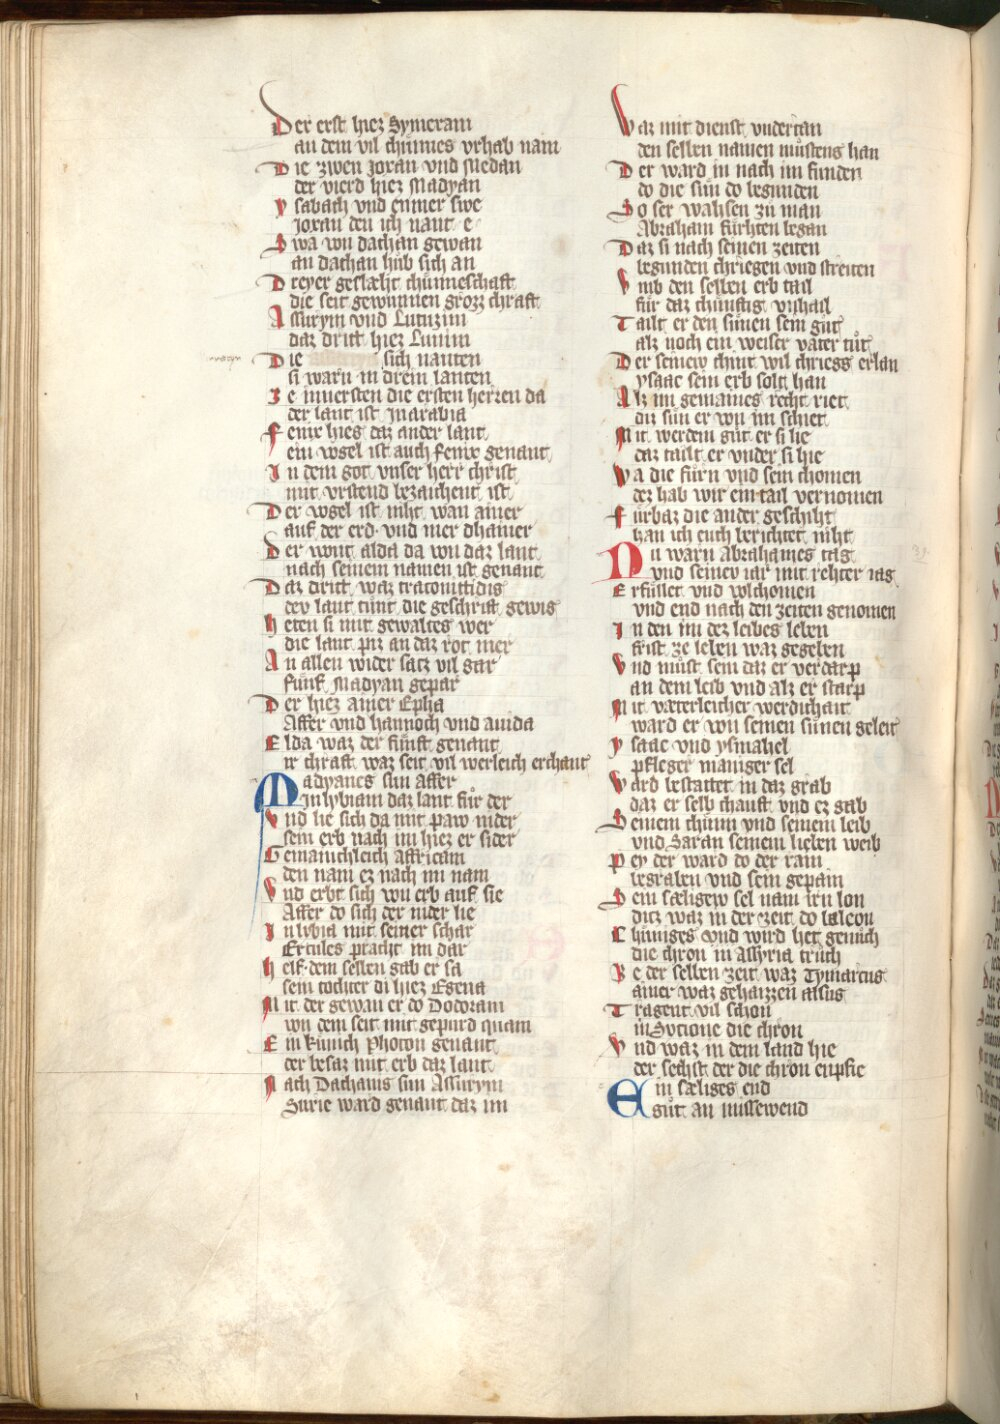 Der erst hiez Symeram
an dem vil chunnes vrhab nam
Die zwen Joxan vnd Medan
der vierd hiez Madyan
ysabach vnd emmer swe
Joxan den ich nant e
Swa von dachan gewan
an dachan hub sich an
Dreyer geslæht chunneschaft
die seit gewunnen grozz chraft
Assurym vnd Lutuzim
daz dritt hiez Lunim
Die sich nanten
si warn in drein lanten
Je inuersten die ersten herren da
der lant ist in arabia
Fenix hies daz ander lant
ein vogel ist auch fenix genant
In dem got vnser herr christ
mit vrstend bezaichent ist
Der vogel ist niht wan ainer
auf der erd vnd mer dhainer
Der wont alda da von daz lant
nach seinem namen ist genant
Daz dritt waz tratonittidis
dev lant tunt die geschrift gewis
Heten si mit gewaltes wer
die lant piz an daz rot mer
An allen wider satz vil gar
funf Madyan gepar
Der hiez ainer Epha
Affer vnd hannoch vnd auida
Elda waz der funft genant
ir chraft waz seit vil werleich erchant
Madyanes sun Affer
In lybiam daz lant fůr der
Vnd lie sich da mit paw nider
sein erb nach im hiez er sider
Gemainchleich Affricam
den nam ez nach im nam
Vnd erbt sich von erb auf sie
Affer do sich der nider lie
In lybia mit seiner schar
Ercules pracht im dar
helf dem selben gab er sa
sein tochter di hiez Egena
Mit der gewan er do Dodoram
von dem seit mit gepurd quam
Ein kunich Photon genant
der besaz mit erb daz lant
Nach Dachans sun Assurym
Surie ward genant daz im
Waz mit dienst vndertan
den selben namen můstens han
Der ward in nach im funden
do die sun do begunden
So ser wahsen zu man
Abraham furhten began
Daz si nach seinen zeiten
begunden chriegen vnd streiten
Vmb den selben erb tail
für daz chunftig vnhail
Tailt er den sunen sein gůt
alz noch ein weiser vater tůt
Der seinew chint wil chriegs erlan
ysaac sein erb solt han
Alz im gemaines recht riet
diz sun er von im schiet
Mit werdem gut er si lie
daz tailt er vnder si hie
Wa die furn vnd sein chomen
dez hab wir ein tail vernomen
fürbaz die ander geschiht
han ich euch berichtet niht
Nu warn Abrahames tag
vnd seinev iar mit rehter iag
Erfullet vnd volchomen
vnd end nach den zeiten genomen
In den im dez leibes leben
frist ze leben waz gegeben
Vnd můst sein daz er verdarp
an dem leib vnd alz er starp
Mit væterleicher werdichait
ward er von seinen sunen geleit
ysaac vnd ysmahel
pfleger maniger sel
Ward bestattet in daz grab
daz er selb chauft vnd ez gab
Seinem chunn vnd seinem leib
vnd Saran seinem lieben weib
Pey der ward do der rain
begraben vnd sein gepain
Sein sæligew sel nam irn lon
ditz waz in der zeit do baleon
Chuniges vnd wird het genuch
die chron in Assyria truch
Be der selben zeit waz Tymarcus
ainer waz gehaizzen alsus
Tragent vil schon
in Sycione die chron
Vnd waz in dem land hie
der sechst der die chron enpfie
Ein sæliges end
gůt an missewend